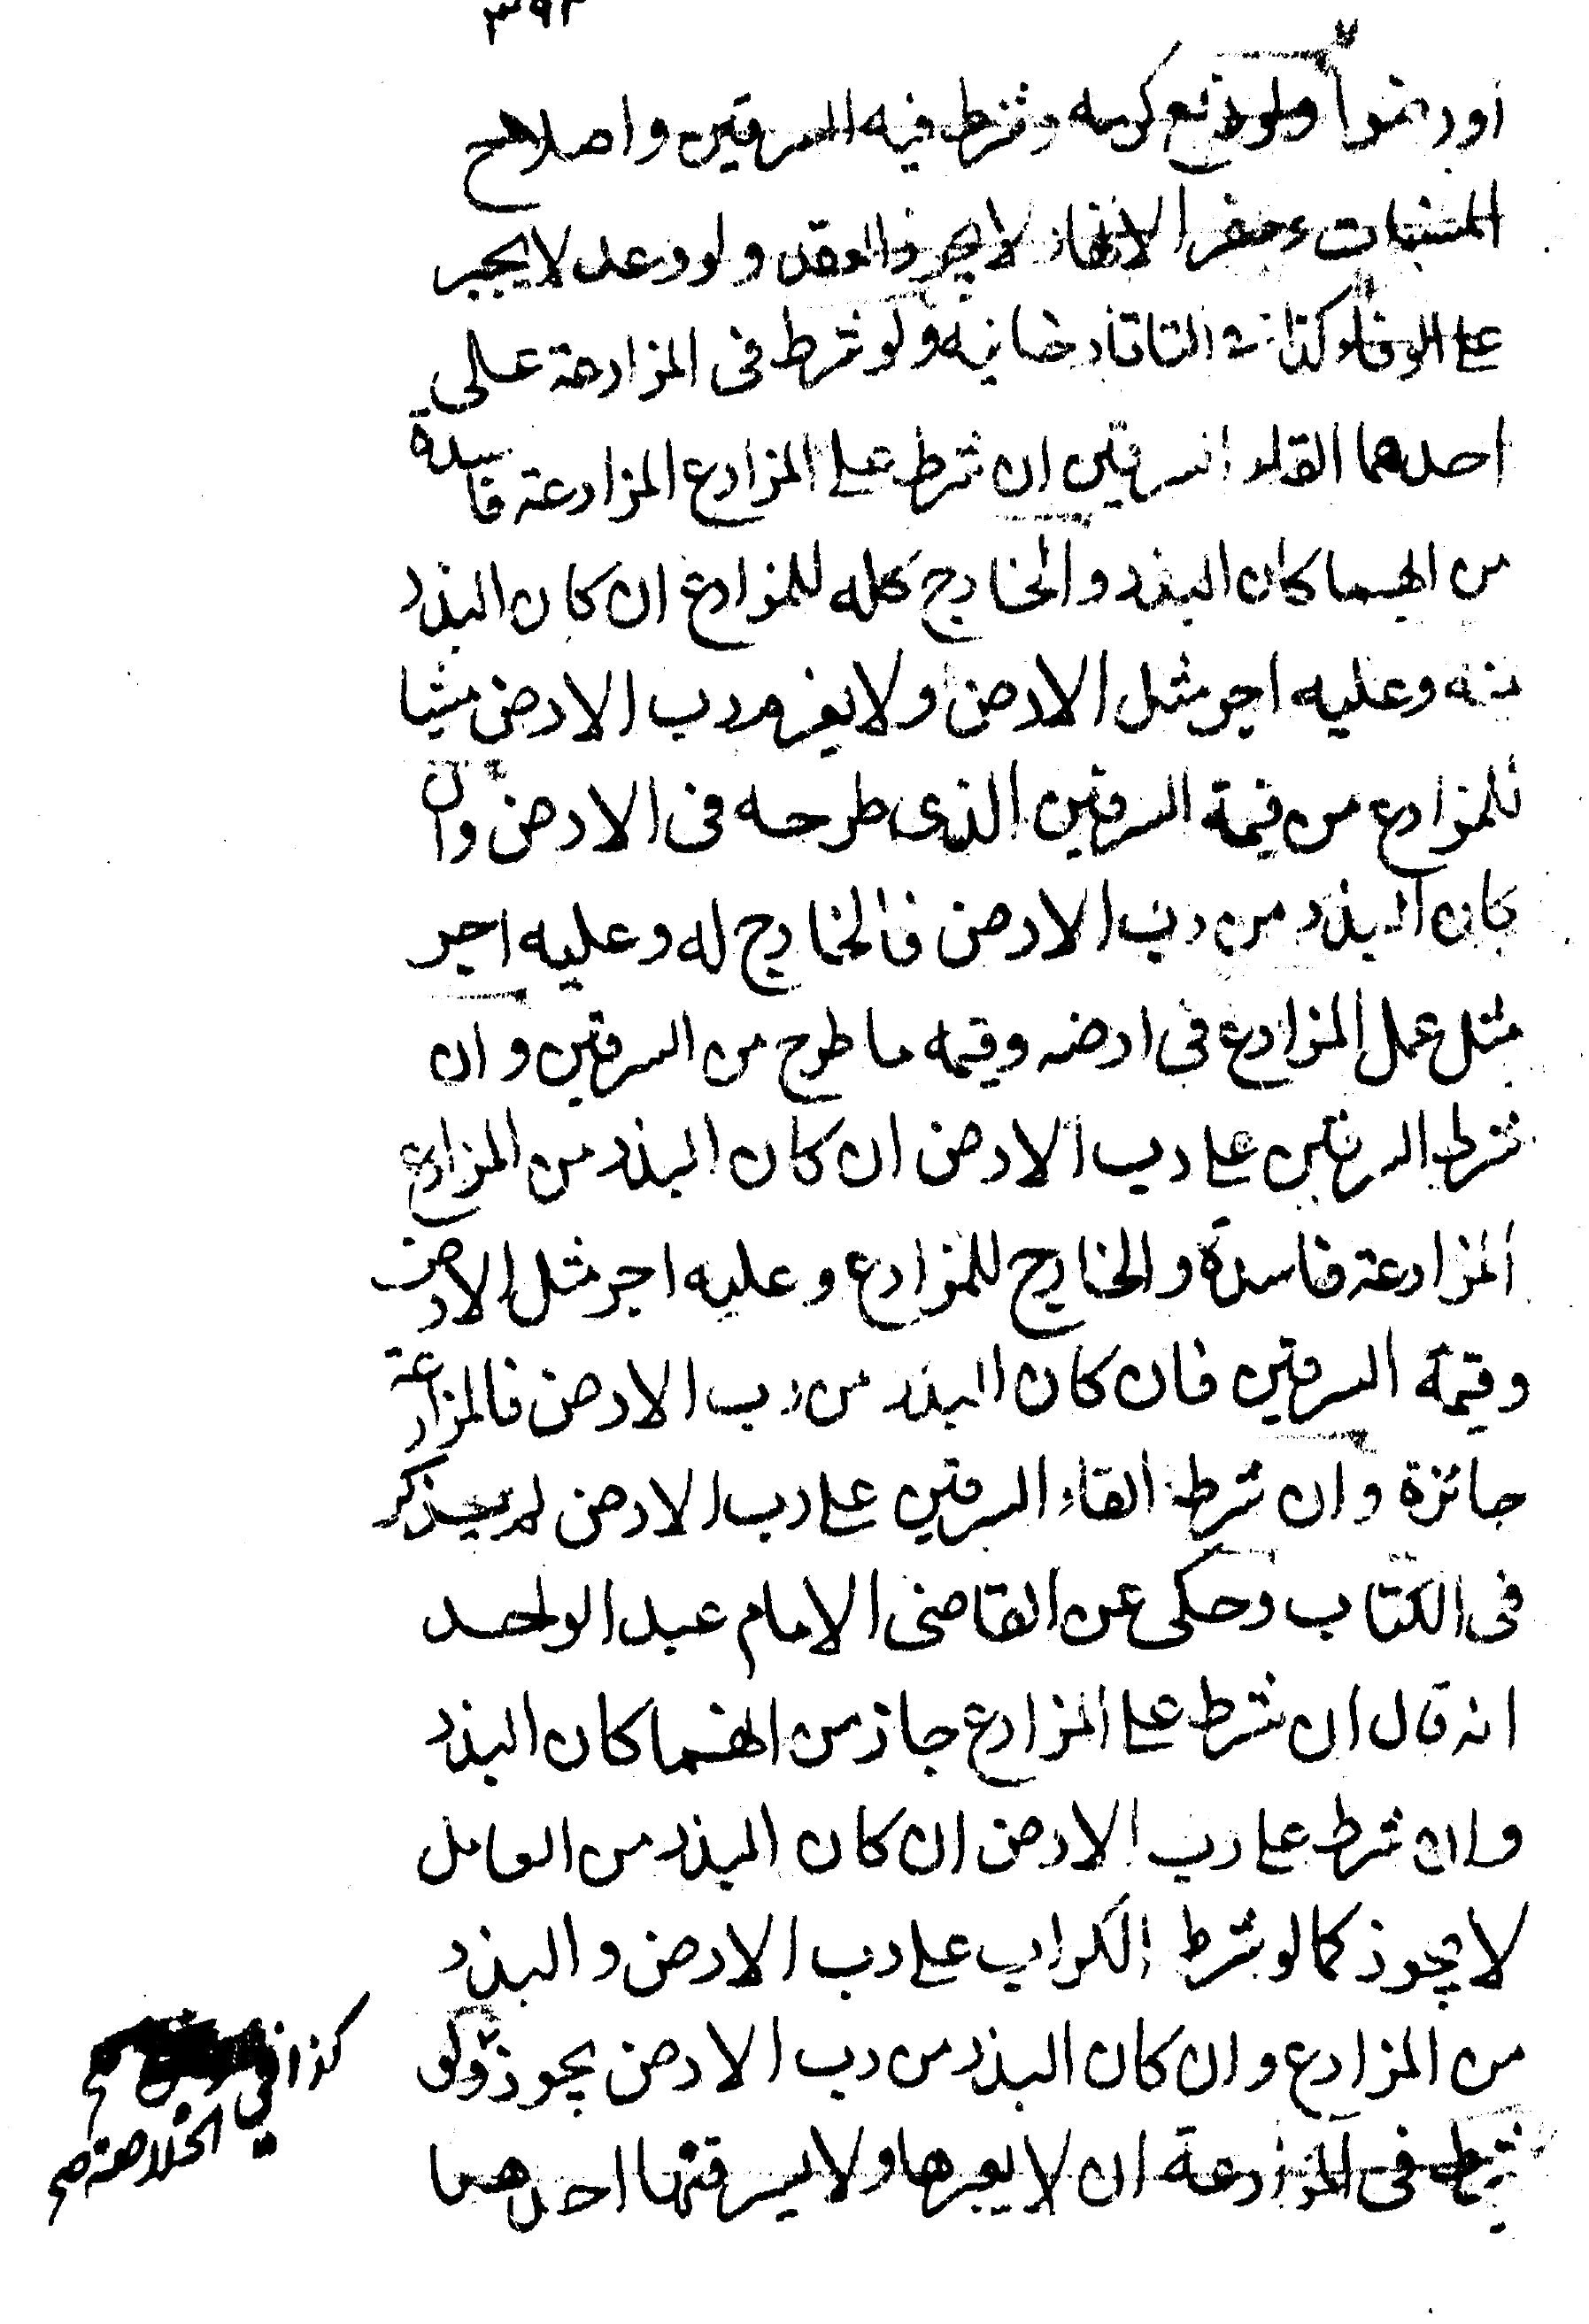 او ربحوا ولو دفع كرمه وشرط فيه السرقين واصلاح
المسنيات وحفر الانهار لا يجوز العقد ولو وعد لا يجبر
على الوفاء كذا فى التاتارخانيه ولو شرط فى المزارعة على
احدهما القاء السرقين ان شرط على المزارع المزارعة فاسدة
من ايهما كان البذر والخارج كله للمزارع ان كان البذر
منه وعليه اجر مثل الارض ولا يغرم رب الارض شيا
للمزارع من قيمة السرقين الذى طرحه فى الارض وان
كان البذر من رب الارض فالخارج له وعليه اجر
مثل عمل المزارع فى ارضه وقيمه ما طرح من السرقين وان
شرط السرقين على رب الارض ان كان البذر من المزارع
المزارعة فاسدة والخارج للمزارع وعليه اجر مثل الارض
وقيمة السرقين فان كان البذر من رب الارض فالمزارعة
جائزة وان شرط القاء السرقين على رب الارض لم يذكر
فى الكتاب وحكى عن القاضى الامام عبد الواحد
انه قال ان شرط على المزارع جاز من ايهما كان البذر
وان شرط على رب الارض ان كان البذر من العامل
لا يجوز كما لو شرط الكراب على رب الارض والبذر
من المزارع وان كان البذر من رب الارض يجوز ولو
شرط فى المزارعة ان لا يعرها ولا يسرقنها احدهما
كذا فى
الخلاصة صح